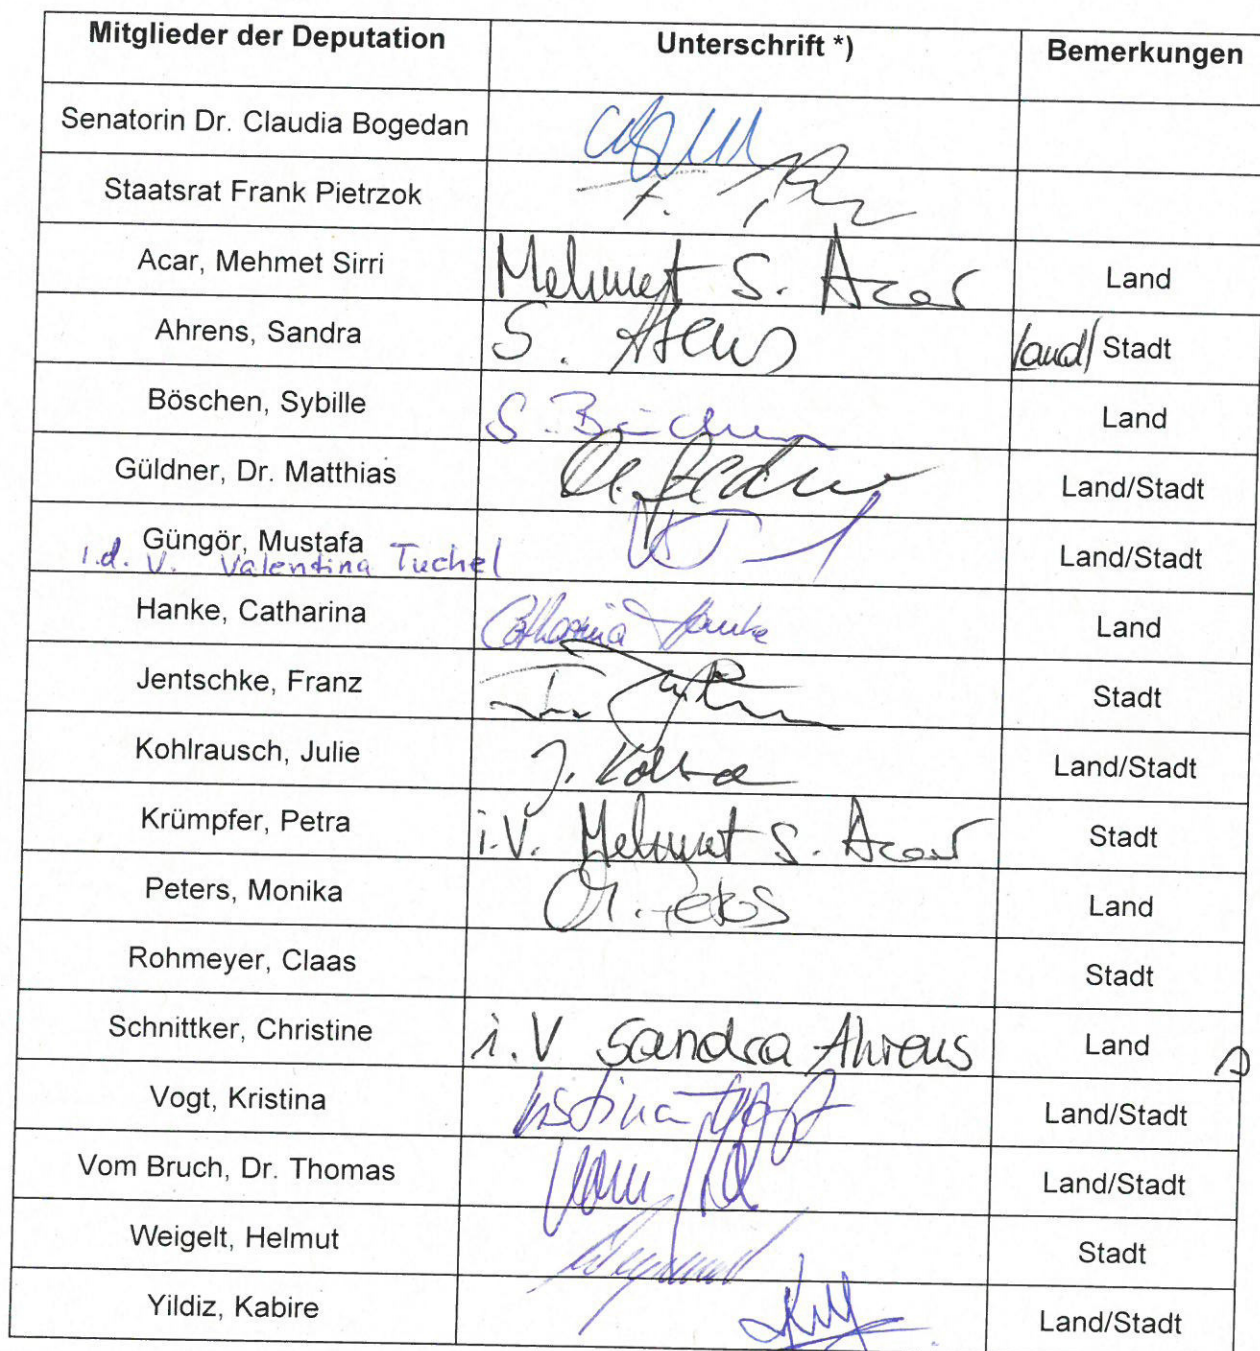 Mitglieder der Deputation Unterschrift *) Bemerkungen
Senatorin Dr. Claudia Bogedan
Staatsrat Frank Pietrzok
Acar, Mehmet Sirri Mehmet S. Acar Land
Ahrens, Sandra S. Ahrens Land/ Stadt
Böschen, Sybille S. Böschen Land
Güldner, Dr. Matthias Land/Stadt
Güngör, Mustafa Land/Stadt
i.d. V. Valentina Tuchel
Hanke, Catharina Catharina Hanke Land
Jentschke, Franz Stadt
Kohlrausch, Julie Land/Stadt
Krümpfer, Petra i.V. Mehmet S. Acar Stadt
Peters, Monika Land
Rohmeyer, Claas Stadt
Schnittker, Christine i.V Sandra Ahrens Land
Vogt, Kristina Kristina Vogt Land/Stadt
Vom Bruch, Dr. Thomas Land/Stadt
Weigelt, Helmut Stadt
Yildiz, Kabire Land/Stadt